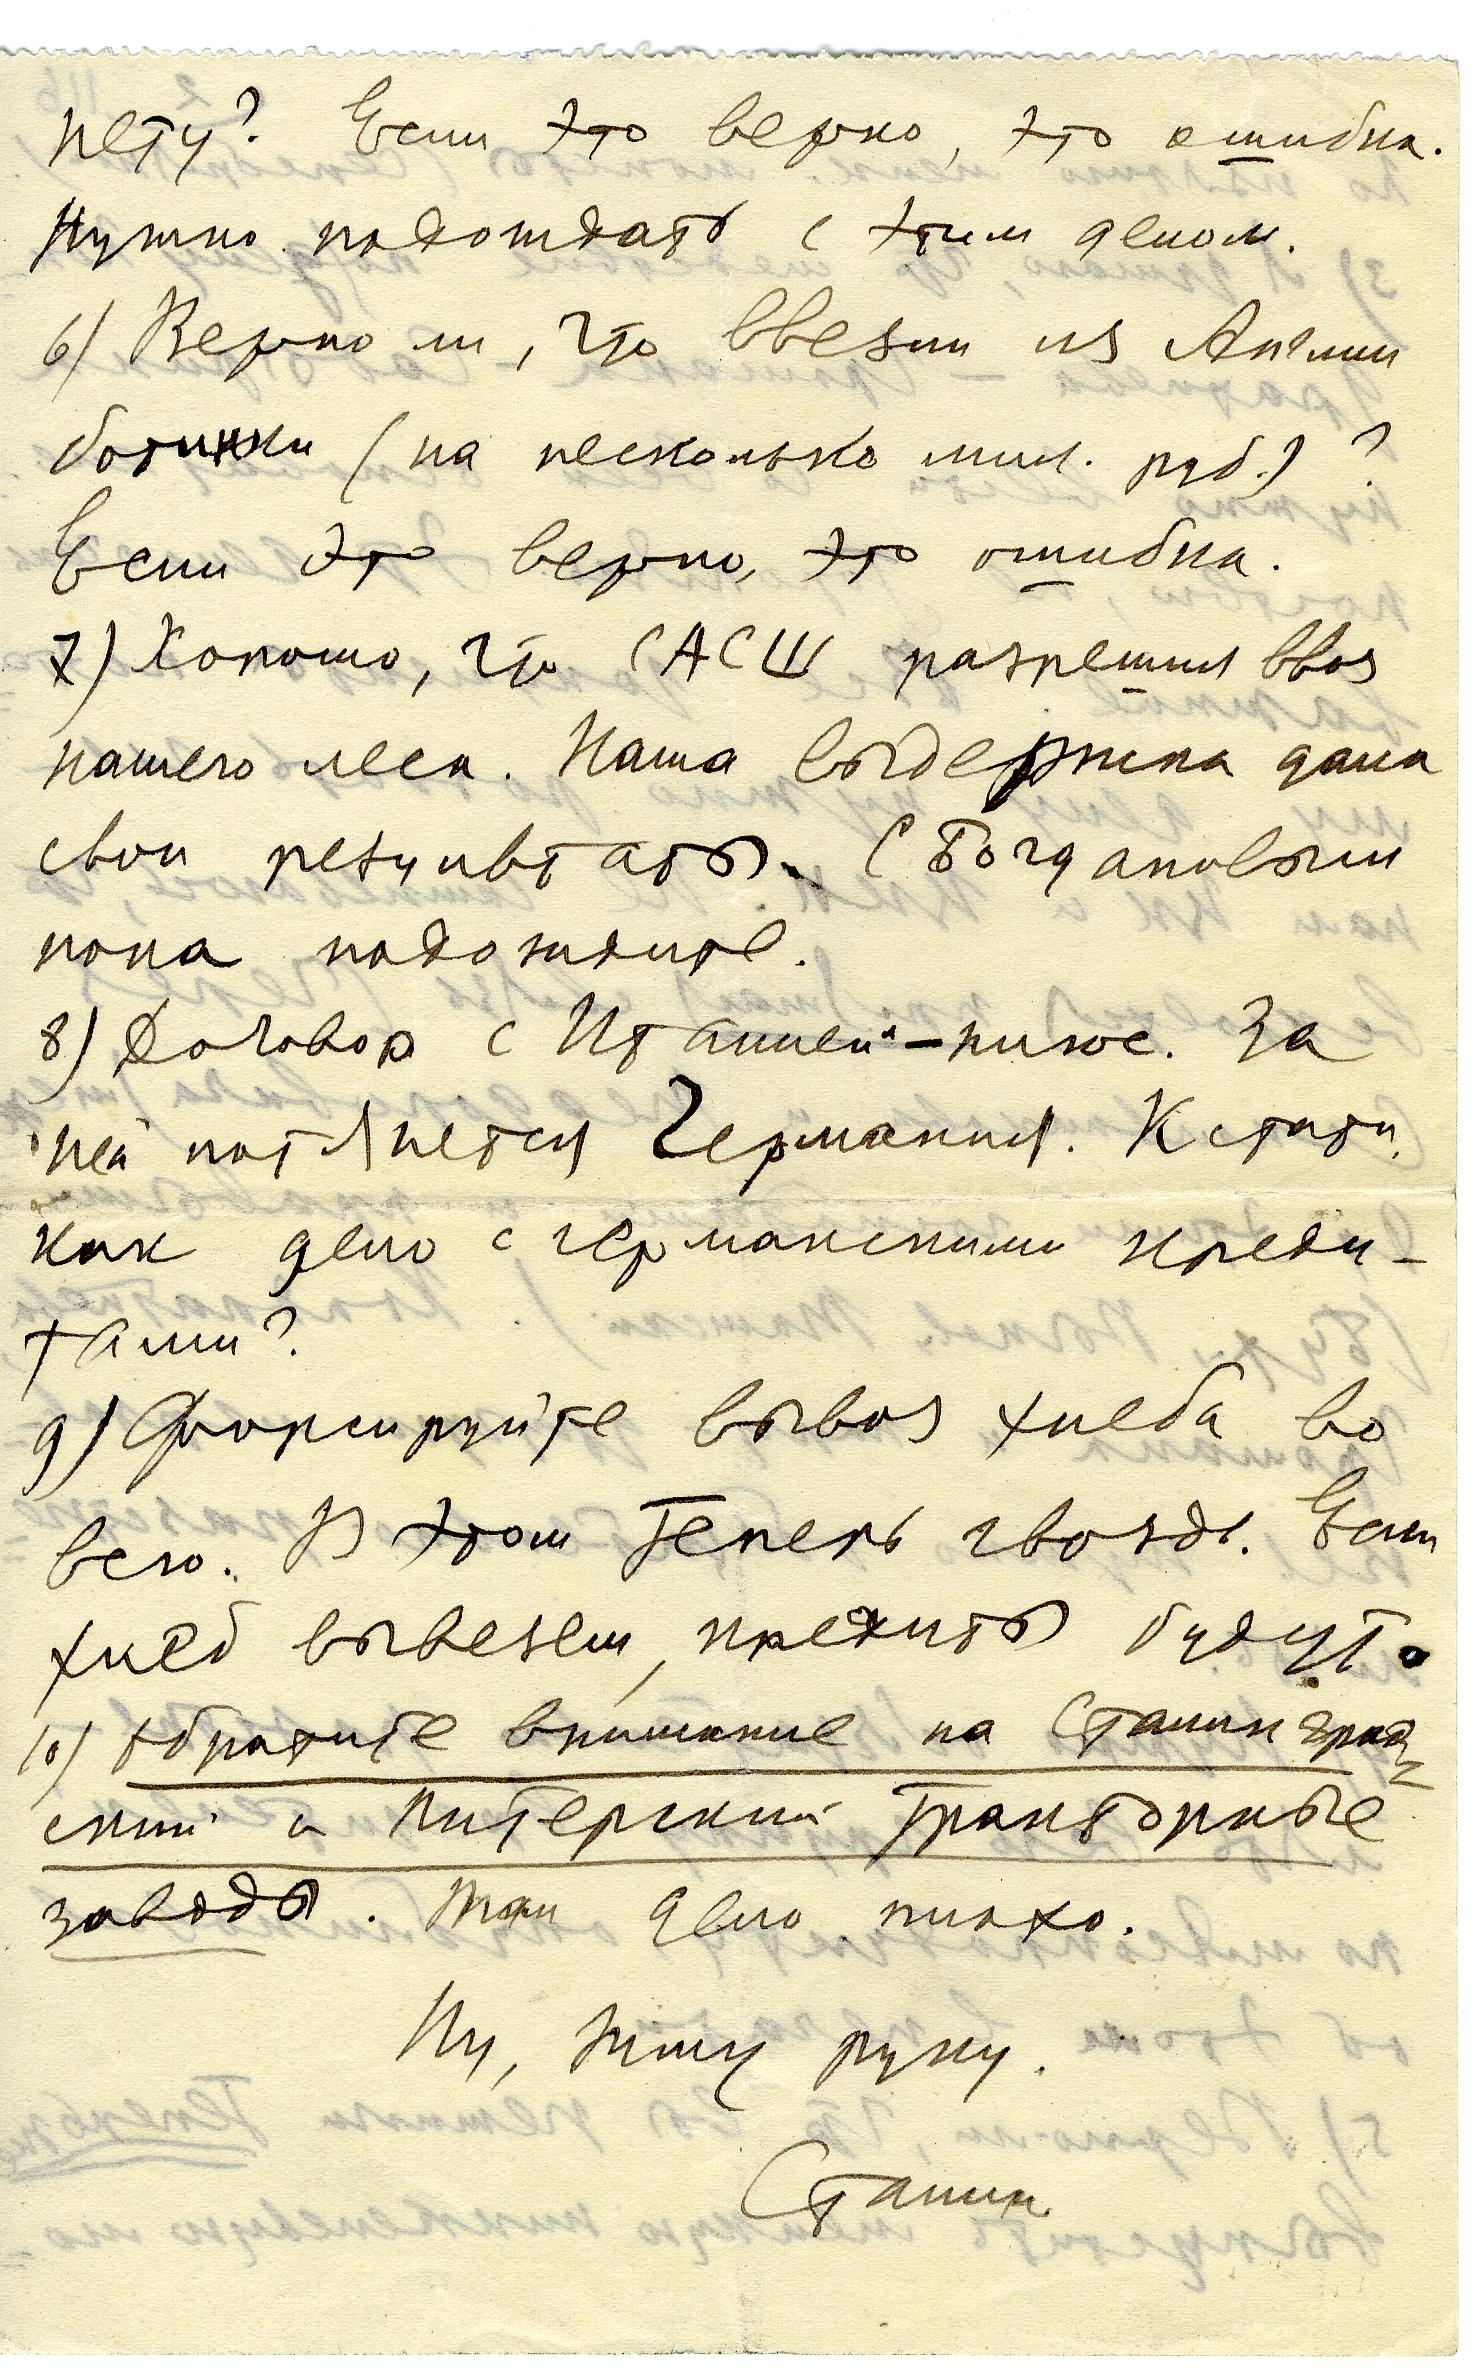 нету? Если это верно, это ошибка.
Нужно подождать с этим делом.
6) Верно ли, что ввезли из Англии
ботинки (на несколько мил. руб.)?
Если это верно, это ошибка.
7) Хорошо, что САСШ разрешил ввоз
нашего леса. Наша выдержка дала
свои результаты. С Богдановым
пока подождите.
8) Договор с Италией – плюс. За
ней потянется Германия. Кстати,
как дело с германскими креди-
тами?
9) Форсируйте вывоз хлеба во
всю. В этом теперь гвоздь. Если
хлеб вывезем, кредиты будут.
10) Обратите внимание на Сталинград-
ский и Питерский тракторные
заводы. Там дело плохо.
Ну, жму руку.
Сталин.